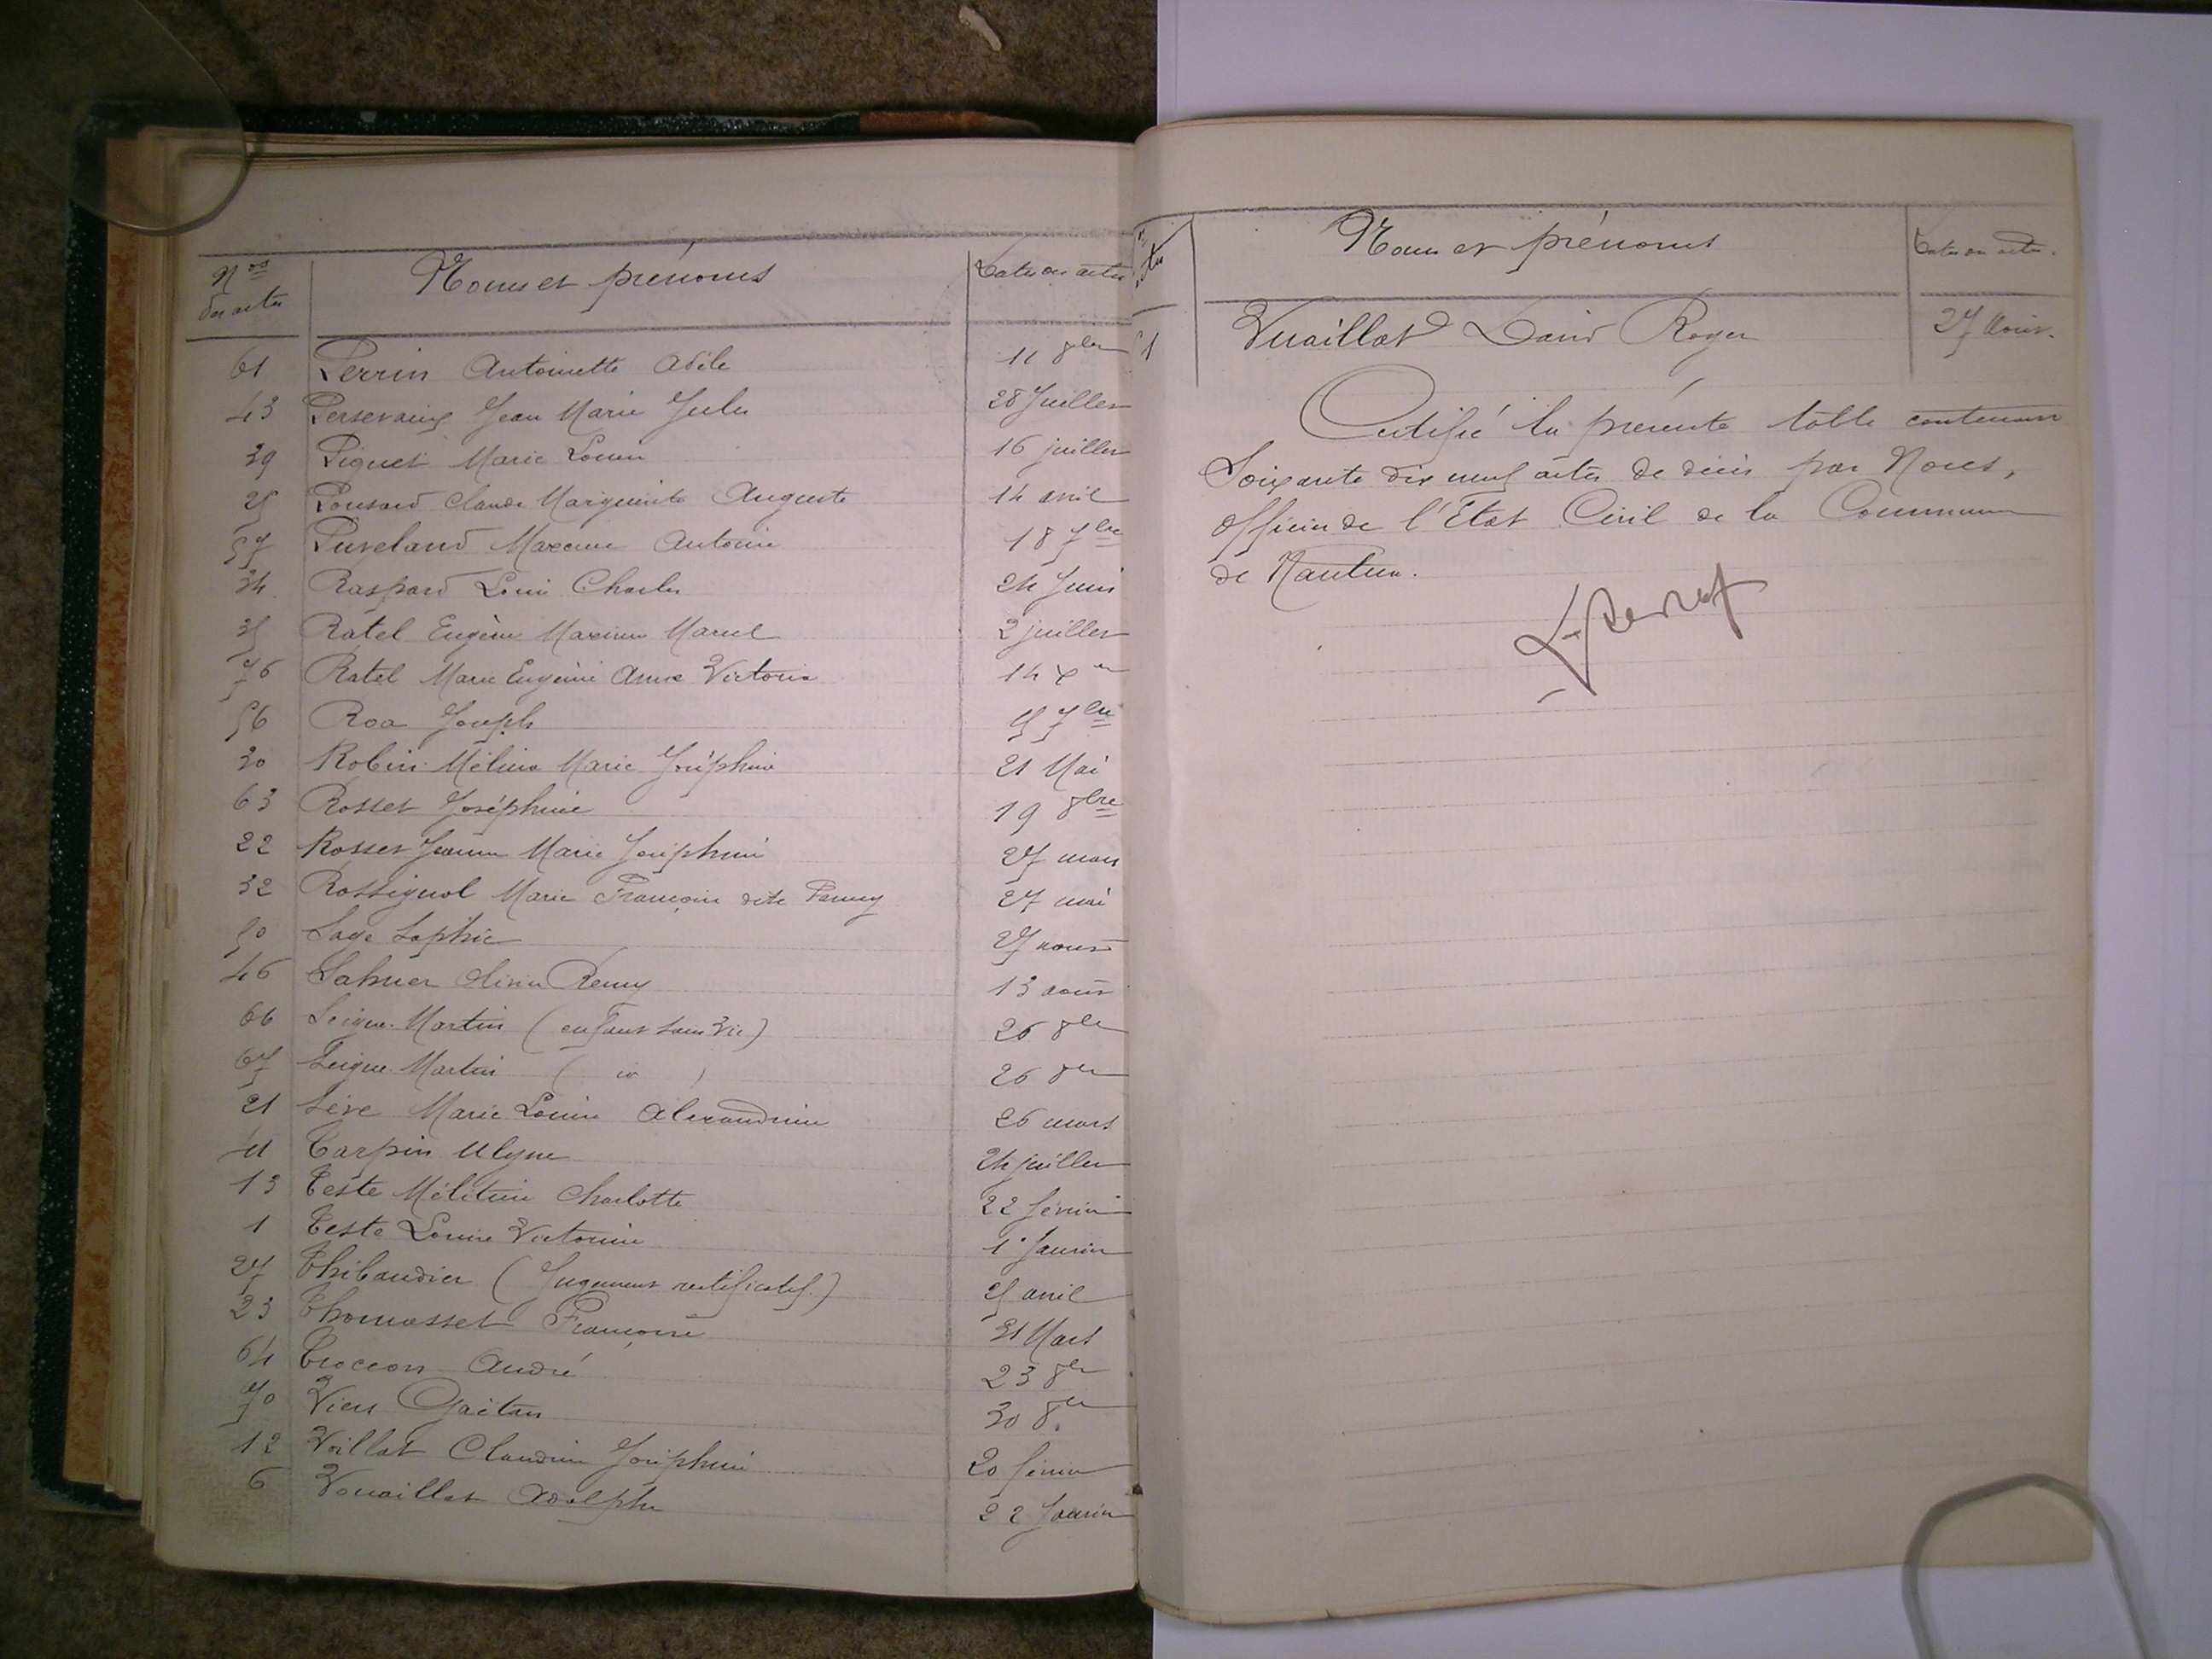 Nos des actes Noms et prénoms Dates des actes
61 Perrin Antoinette Adèle 11 8bre
43 Persevaing Jean Marie Jules 28 Juillet
39 Piquet Marie Louise 16 juillet
25 Ponsard Claude Marguerite Auguste 14 avril
57 Puveland Maxime Antoine 18 7bre
34 Raspard Louis Charles 24 Juin
35 Ratel Eugène Maxime Marcel 2 juillet
76 Ratel Marie Eugénie Anne Victoria 14 Xre
56 Roa Joseph 15 7bre
30 Robin Mélina Marie Joséphine 21 Mai
63 Rosset Joséphine 19 8bre
22 Rosset Jeanne Marie Joséphine 27 mars
32 Rossignol Marie Françoise dite Fanny 27 mai
50 Sage Sophie 25 aout
46 Sahuer Remy 13 août
66 Seigne-Martin (enfant sans vie) 26 8bre
67 Seigne-Martin ( id ) 26 8bre
21 Sève Marie Louise Alexandrine 26 mars
41 Tarpin Ulysse 24 juillet
13 Teste Mélitine Charlotte 22 février
1 Teste Louise Victorine 1er Janvier
27 Thibaudier (Jugement rectificatif) 25 avril
23 Thomasset Françoise 31 Mars
64 Troccon André 23 8bre
70 Viers Gaëtan 30 8bre
12 Voillat Claudine Joséphine 20 février
6 Vouaillat Adolphe 22 Janvier
Noms et prénoms Dates des actes.
51 Vuaillat David Roger 27 Août.
Certifié la présente table contenant
Soixante dix neuf actes de décès par Nous,
officier de l'Etat Civil de la Commune
de Nantua.